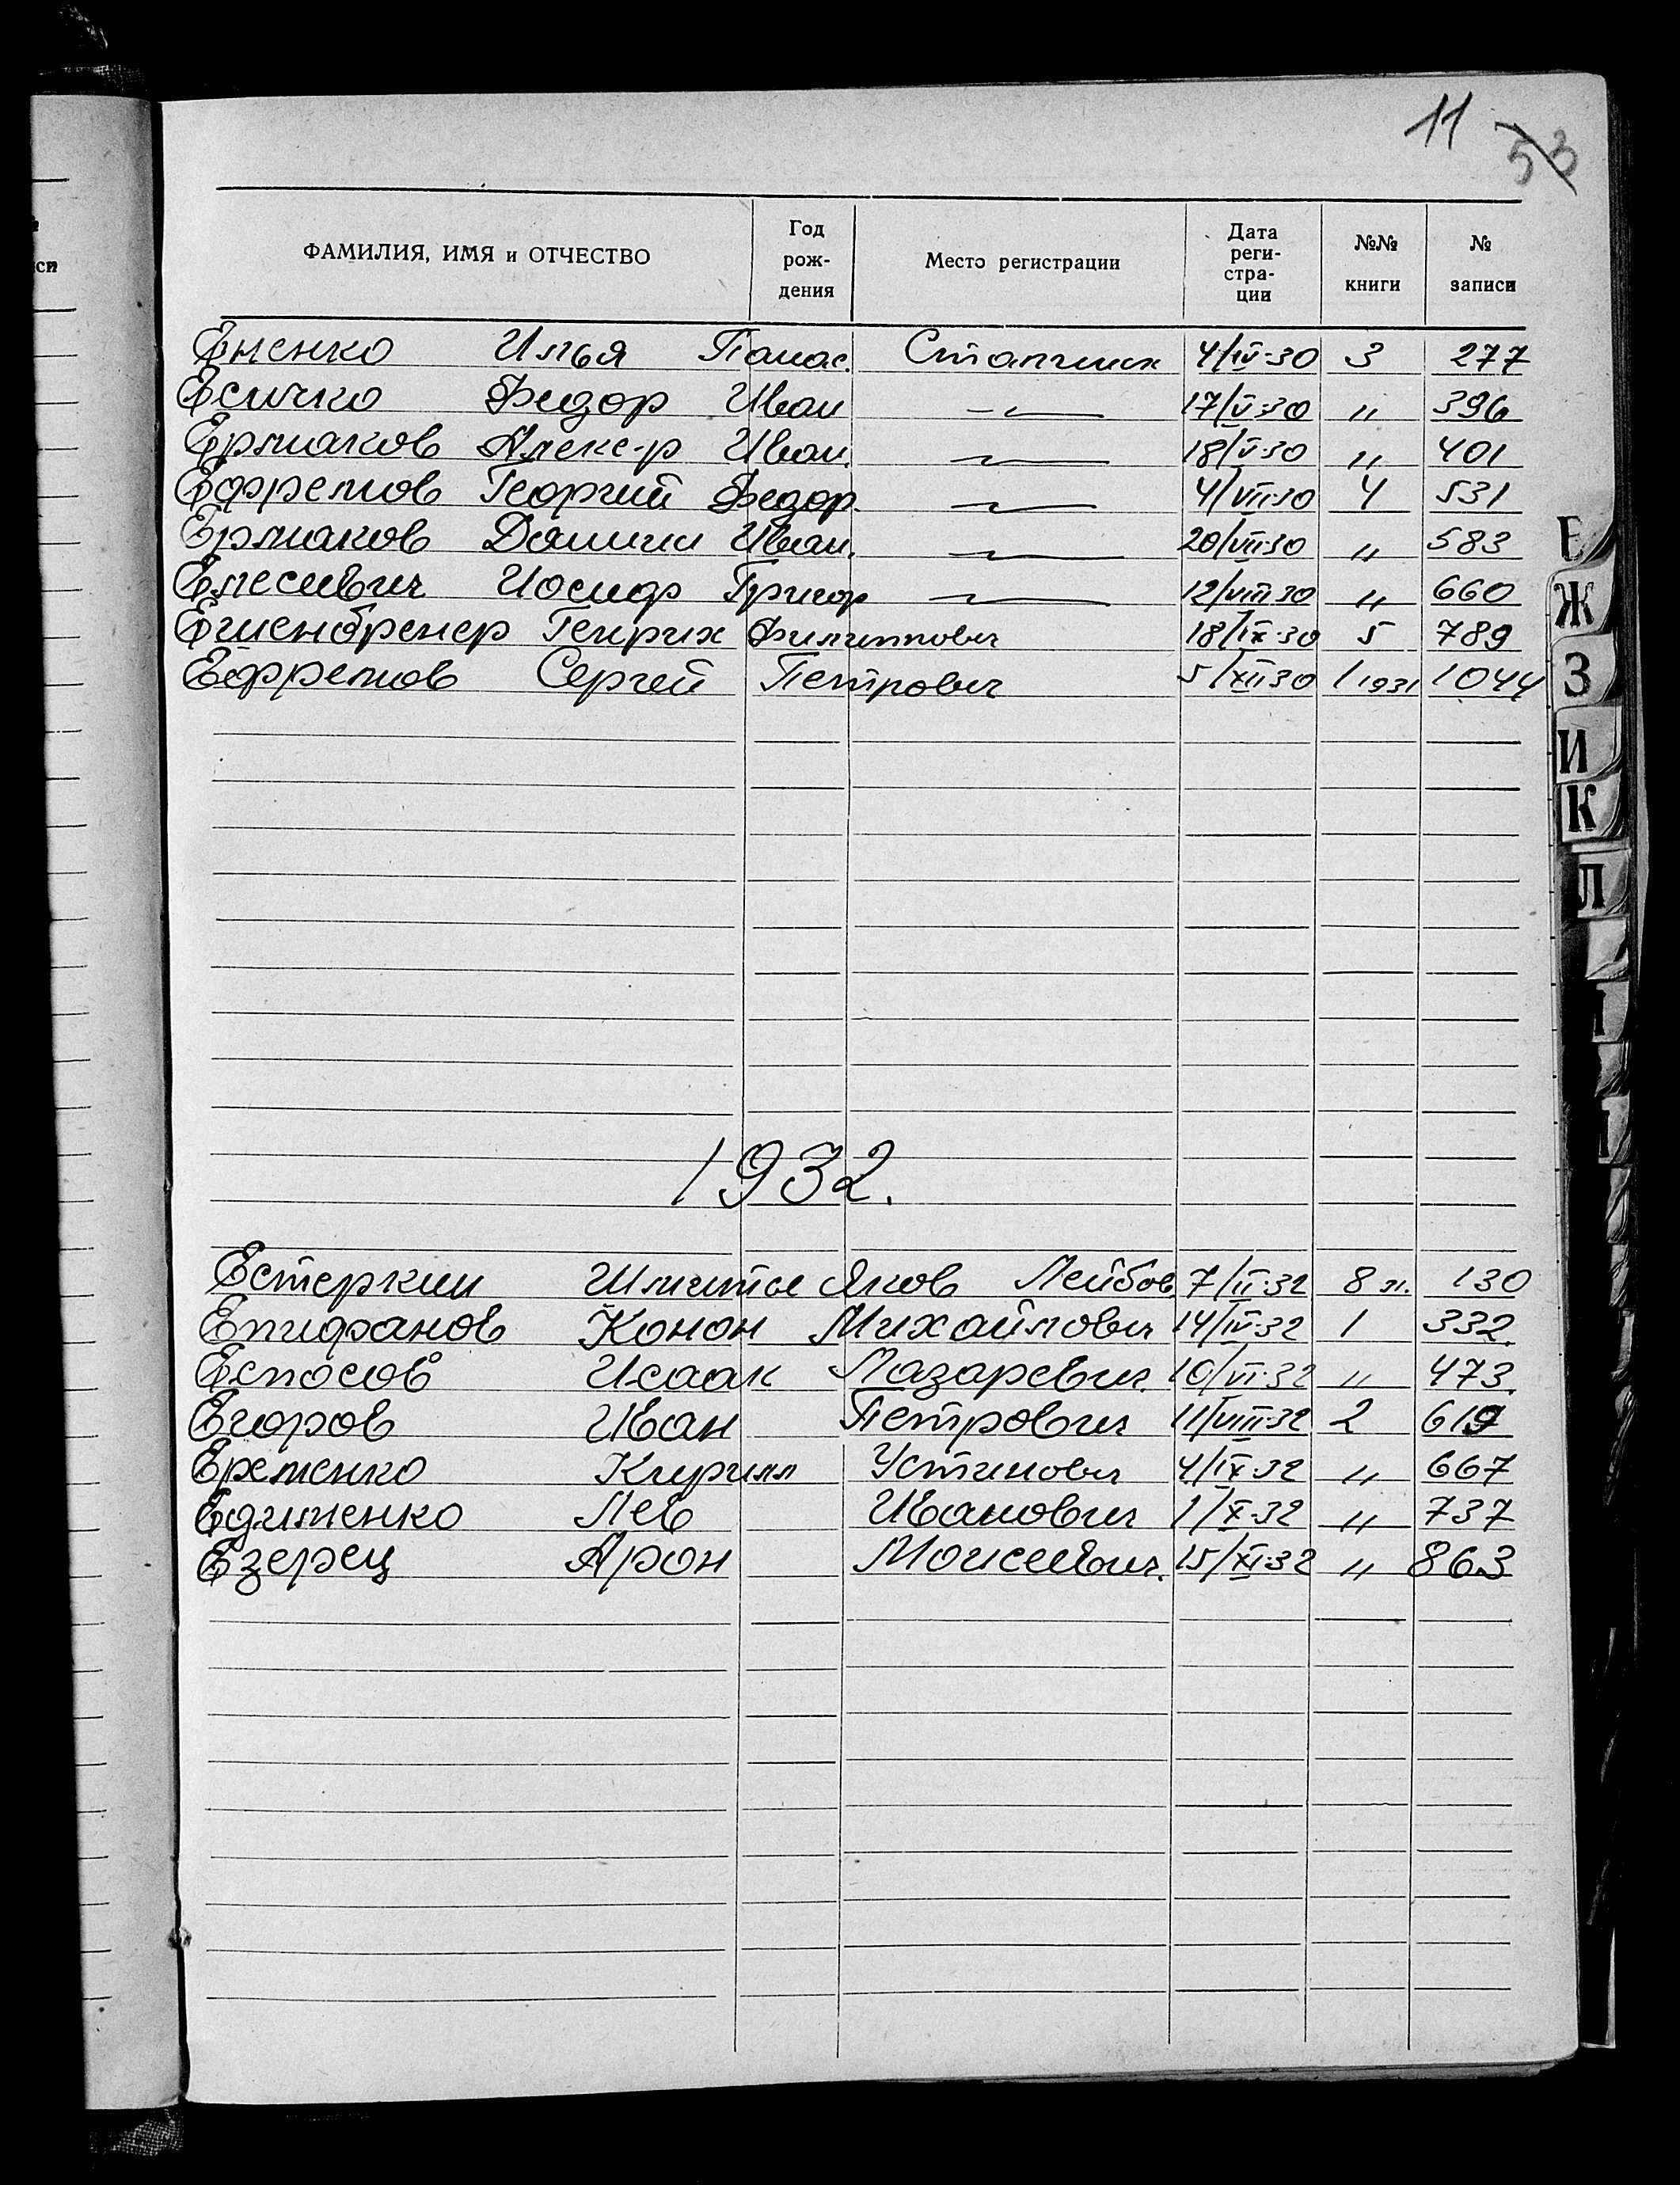 11
53
ФАМИЛИЯ, ИМЯ и ОТЧЕСТВО Год рождения Место регистрации Дата регистрации №№ книги № записи
Ененко Илья Панас. 4/IV-30 3 277
Есичко Федор Иван 17/V-30 " 396
Ермаков Алекс-р Иван. 18/V-30 " 401
Ефремов Георгий Федор. 4/VII-30 4 531
Ермаков Даниил Иван. 20/VII-30 " 583
Елесиевич Иосиф Григор 12/VIII-30 " 660
Генрих Филиппович 18/IX-30 5 789
Ефремов Сергей Петрович 5/XII-30 1 1931 1044
Е
Ж
З
И
К
Л
1932.
Естеркин Яков Лейбов. 7/II-32 8 130
Епифанов Конон Михайлович 14/IV-32 1 332.
Исаак Лазаревич. 10/VI-32 " 473.
Егоров Иван Петрович 11/VIII-32 2 619
Еременко Кирилл Устинович 4/IX-32 " 667
Едименко Лев Иванович 1/X-32 " 737
Езерец Арон Моисеевич. 15/XI-32 " 863